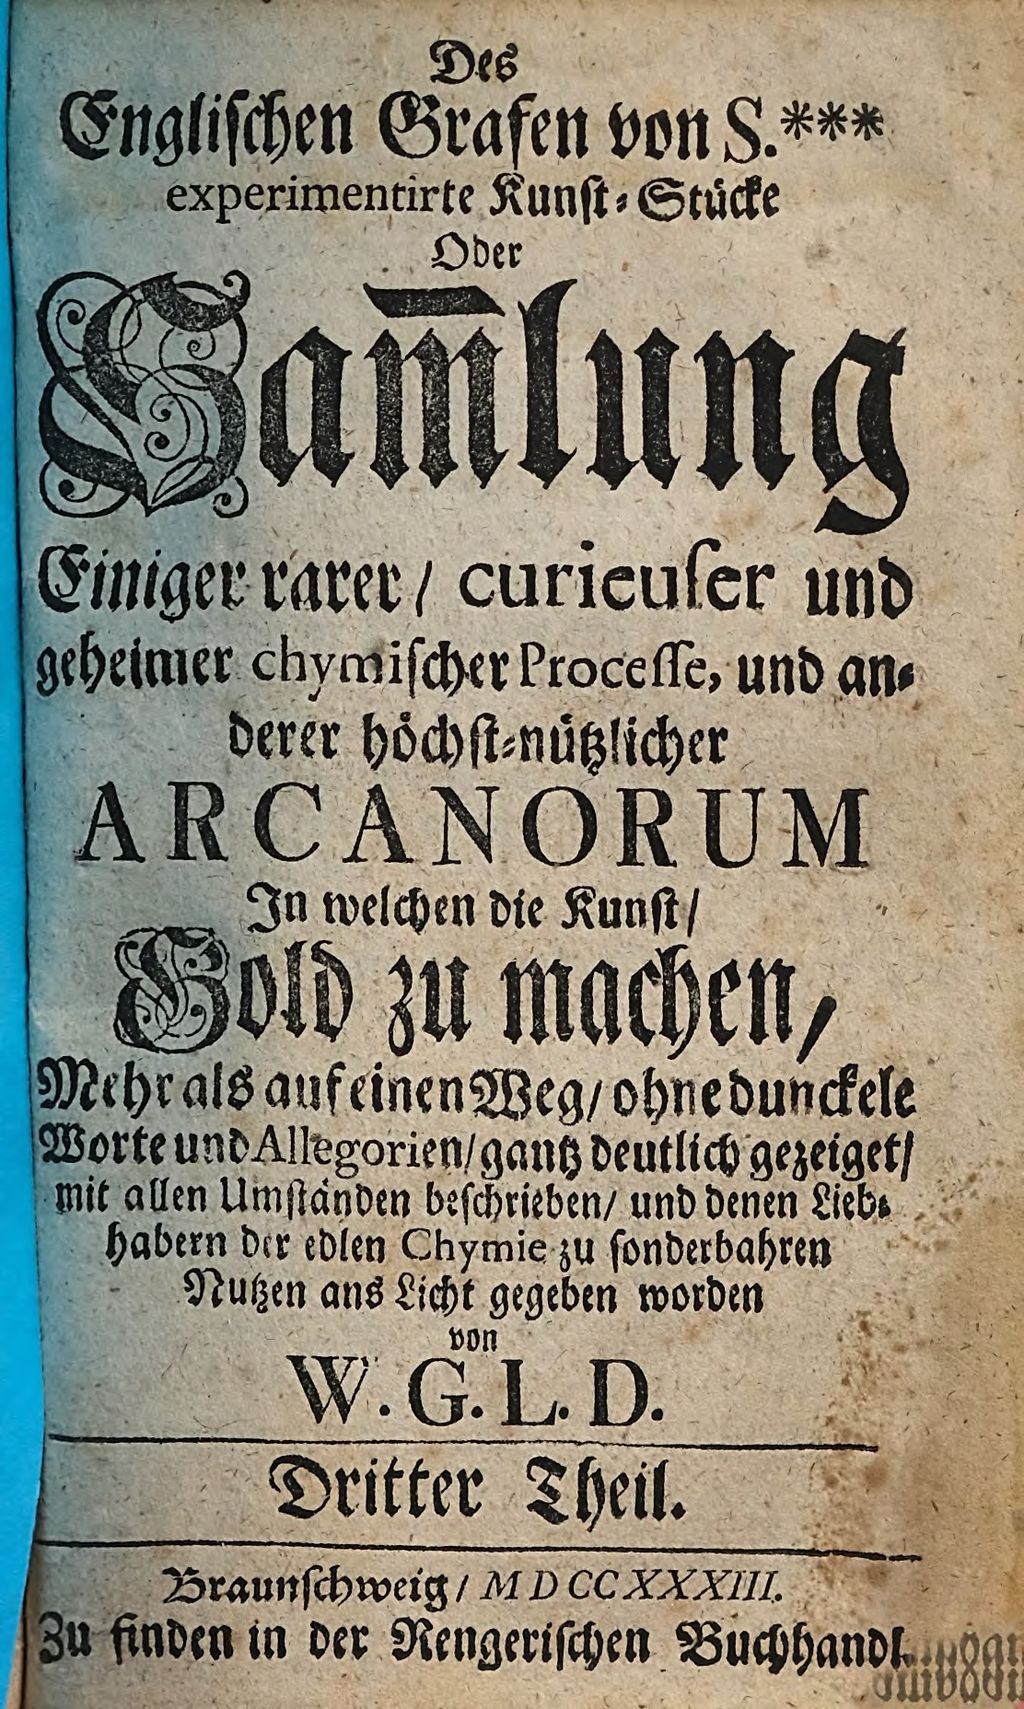 Des
Englischen Grafen von S.***
experimentirte Kunst-Stücke
Oder
Sam̅lung
Einiger rarer/ curieuser und
geheimer chymischer Processe, und an-
derer höchst-nützlicher
ARCANORUM
In welchen die Kunst/
Gold zu machen,
Mehr als auf einen Weg/ ohne dunckele
Worte und Allegorien/ gantz deutlich gezeiget/
mit allen Umständen beschrieben/ und denen Lieb-
habern der edlen Chymie zu sonderbahren
Nutzen ans Licht gegeben worden
von
W. G. L. D.
Dritter Theil.
Braunschweig/ MDCCXXXIII.
Zu finden in der Rengerischen Buchhandl.